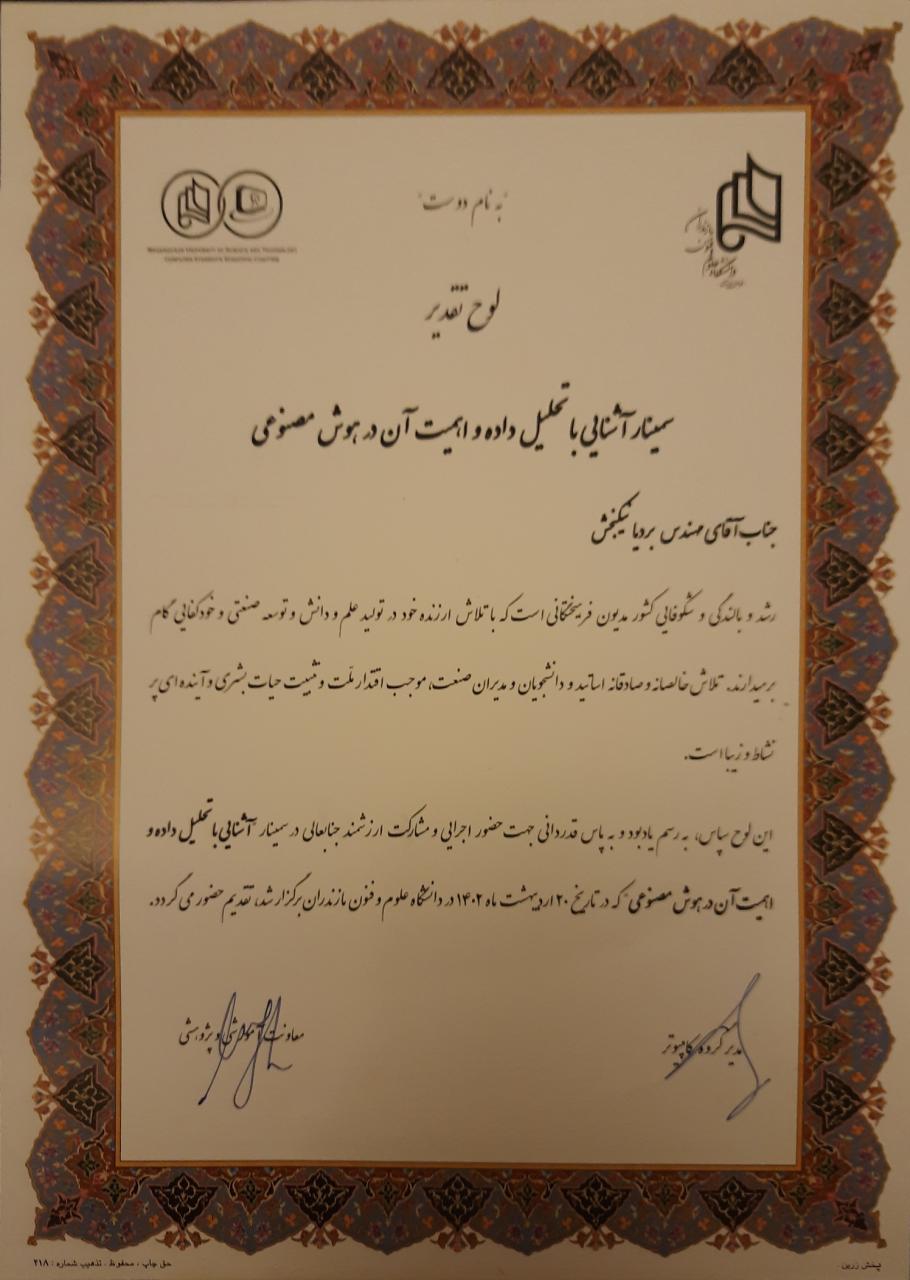 "به نام دوست"
دانشگاه علوم و فنون مازندران
MAZANDARAN UNIVERSITY OF SCIENCE AND TECHNOLOGY
COMPUTER STUDENTS SCIENTIFIC
لوح تقدیر
سمینار آشنایی با تحلیل داده و اهمیت آن در هوش مصنوعی
جناب آقای مهندس بردیا نیکبخش
رشد و بالندگی و شکوفایی کشور مدیون فرهیختگانی است که با تلاش ارزنده خود در تولید علم و دانش و توسعه صنعتی و خودکفایی گام
برمیدارند. تلاش خالصانه و صادقانه اساتید و دانشجویان و مدیران صنعت، موجب اقتدار ملّت و تثبیت حیات بشری و آینده ای پر
نشاط و زیبا است.
این لوح سپاس، به رسم یادبود و به پاس قدردانی جهت حضور اجرایی و مشارکت ارزشمند جنابعالی در سمینار "آشنایی با تحلیل داده و
اهمیت آن در هوش مصنوعی" که در تاریخ ۲۰ اردیبهشت ماه ۱۴۰۲ در دانشگاه علوم و فنون مازندران برگزار شد، تقدیم حضور می گردد.
مدیر گروه کامپیوتر
معاونت آموزشی و پژوهشی
پخش زرین
حق چاپ ، محفوظ . تذهیب شماره : ۲۱۸